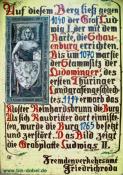 Auf diesem Berg ließ gegen
1040 der Graf Ludwig
I, der mit dem
Barte, die Schau-
enburg errichten.
Bis um 1090 war sie
der Stammsitz der
Ludowinger, des
ersten Thüringer
Landgrafengeschlech-
tes. 1144 erwarb das
Kloster Reinhardsbrunn die Burg.
Als sich Raubritter dort einniste-
ten, wurde die Burg besetzt
und zerstört. Das Bild zeigt
die Grabplatte Ludwigs II.
Fremdenverkehrsamt
Friedrichroda